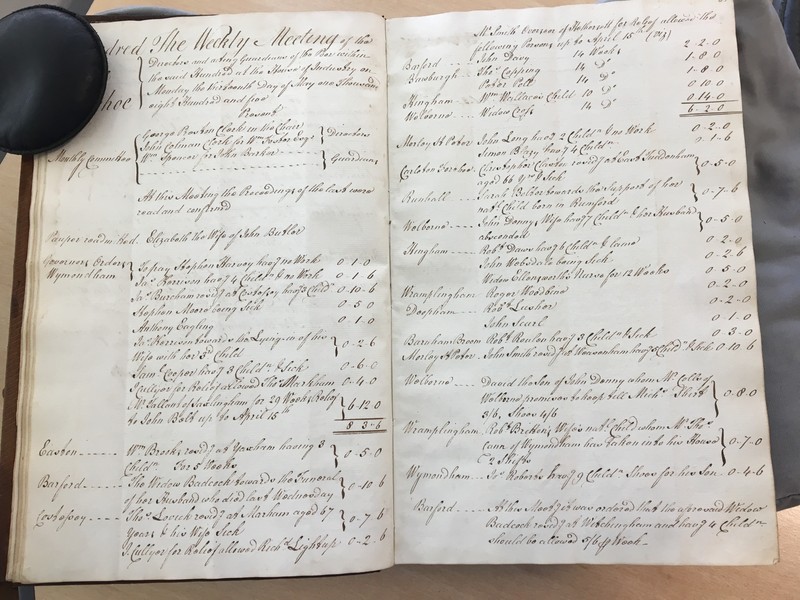 dred The Weekly Meeting of the
Directors and acting Guardians of the Poor within
the said Hundred at the House of Industry on
Monday the thirteenth Day of May one Thousand
hoe eight Hundred and five
Present
George Boston Clerk in the Chair
John Colman Clerk for Wm Foster Esqr Directors
Monthly Committee Wm Spencer for John Barker
Guardians
At this Meeting the Proceedings of the last were
read and confirmed
Pauper readmitted. Elizabeth the Wife of John Butler
Governors Orders To pay Stephen Harvey havg no Work 0 - 1 - 0
Wymondham Jas Morrison havg 4 Childn & no Work 0 - 1 - 6
Jas Burcham residg at Costessey havg 3 Childn 0 - 10 - 6
Stephen Moore being Sick 0 - 5 - 0
Anthony Eagling 0 - 1 - 0
Jas Harrison towards the Lying-in of his
Wife with her 3rd Child 0 - 2 - 6
Saml Cooper havg 3 Childn & Sick 0 - 6 - 0
Cullyer for Relief allowed Thos Markham 0 - 4 - 0
Mr Gillant of Saxlingham for 29 Weeks Relief
to John Bolt up to April 15th 6 - 12 - 0
8 - 3 - 6
Easton Wm Brock residg at Yaxham having 3
Childn For 5 Weeks 0 - 5 - 0
Barford The Widow Badcock towards the Funeral
of her Husband who died last Wednesday 0 - 10 - 6
Costessey Thos Lovick residg at Marham aged 67
Years & his Wife Sick 0 - 7 - 6
J. Cullyer for Relief allowed Richd Lightups 0 - 2 - 6
Mr Smith Overseer of for Relief allowed the
following Persons up to April 15th (Viz)
Barford John Davy 14 Weeks 2 - 2 - 0
Bawburgh Thos Copping 14 Do 1 - 8 - 0
Peter Poll 14 Do 1 - 8 - 0
Hingham Wm Wallace's Child 10 Do 0 - 10 - 0
Welborne Widow 14 Do 0 - 14 - 0
6 - 2 - 0
Morley St Peter John Long havg 2 Childn & no Work 0 - 2 - 0
Simon Blazy havg 4 Childn 0 - 1 - 6
Carleton Forehoe Christopher Claxton residg at East Tuddenham
aged 66 Yrs & Sick 0 - 5 - 0
Runhall Sarah towards the Support of her
natl Child born in Runford 0 - 7 - 6
Welborne John Denny's Wife havg 7 Childn & her Husband
absconded 0 - 5 - 0
Hingham Robt Daws havg 6 Childn & lame 0 - 2 - 0
John Webdale being Sick 0 - 2 - 6
Widow Ellensworth's Nurse for 12 Weeks 0 - 5 - 0
Wramplingham Roger Woodbine 0 - 2 - 0
Deopham Robt Lusher 0 - 2 - 0
John Searl 0 - 1 - 0
Barnham Broom Robt havg 3 Childn & Sick 0 - 3 - 0
Morley St Peter John Smith residg at Wreningham havg 5 Childn & Sick 0 - 10 - 6
Welborne David the Son of John Denny whom Mr Colls of
Welborne promises to keep till Michs Shirt
3/6, Shoes 4/6 0 - 8 - 0
Wramplingham Robt Wife's natl Child whom Mr Thos
Cann of Wymondham has taken into his House
2 Shifts 0 - 7 - 0
Wymondham Roberts havg 9 Childn Shoes for his Son 0 - 4 - 6
Barford At this Meetg it was ordered that the aforesaid Widow
Badcock residg at Witchingham and havg 4 Childn
should be allowed 5/6 Week